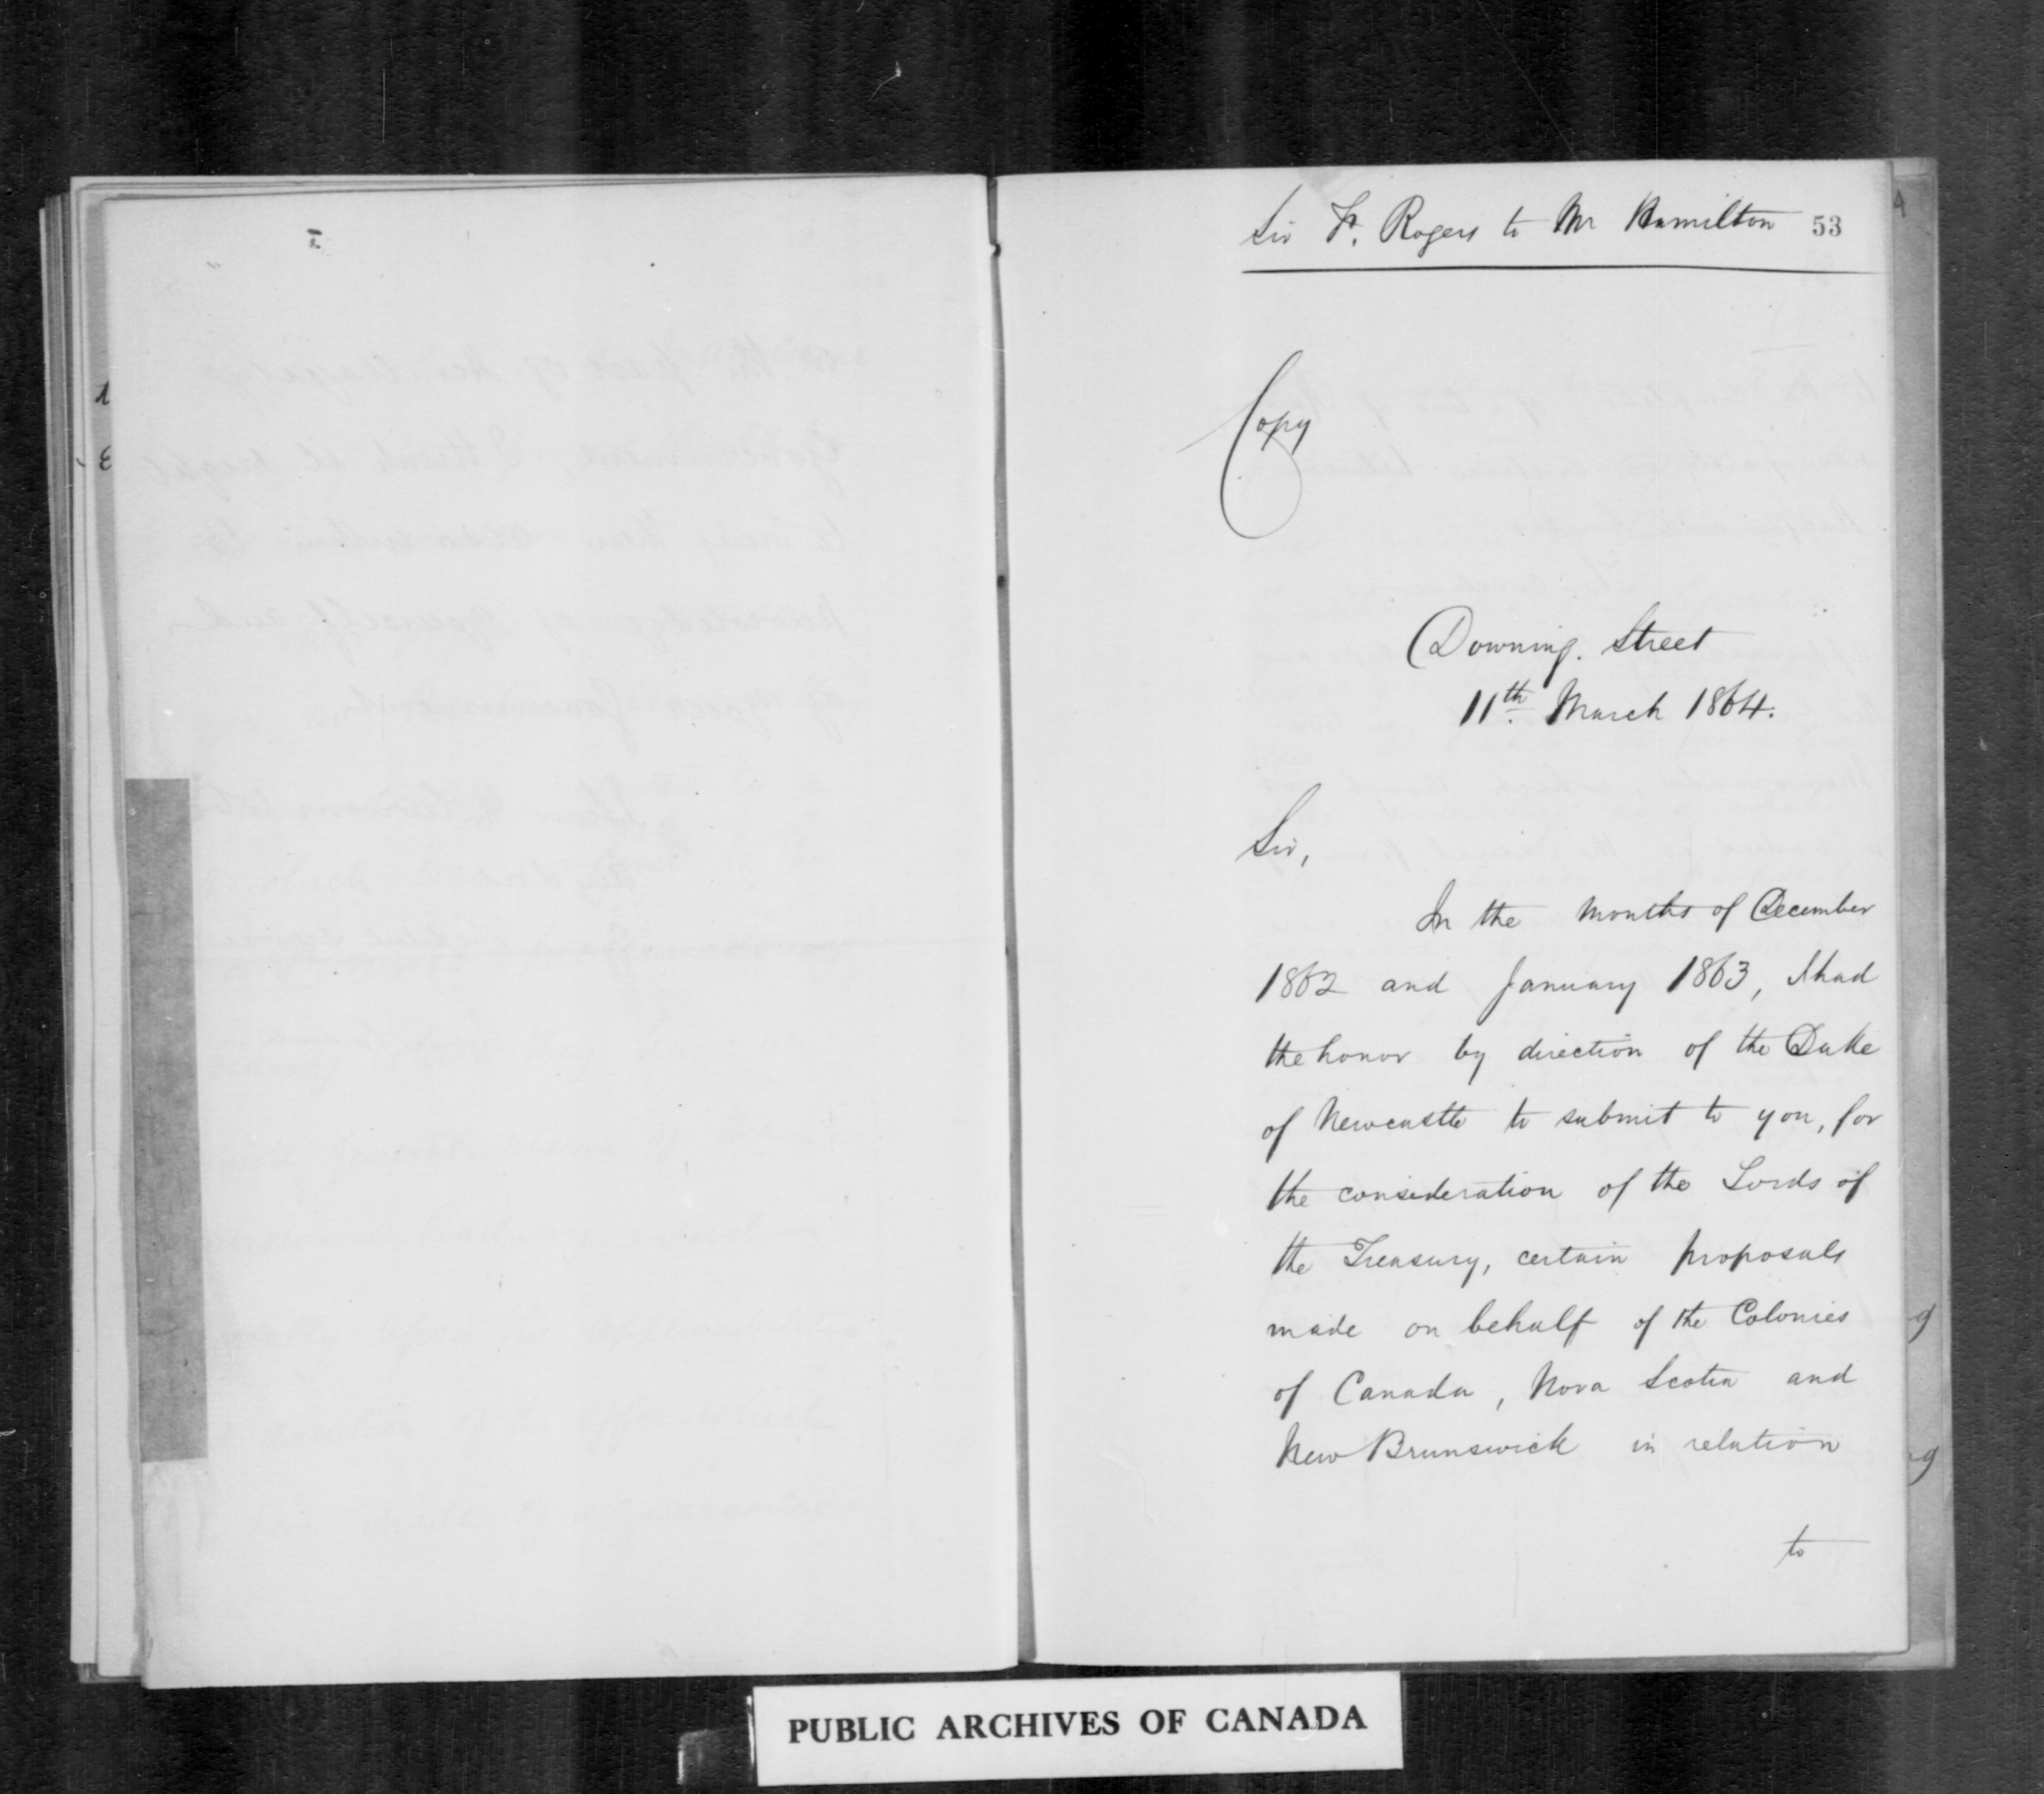 Sir F. Rogers to Mr Hamilton 53
Copy
Downing. Street
11th March 1864.
Sir,
In the months of December
1862 and January 1863, I had
the honor by direction of the Duke
of Newcastle to submit to you, for
the consideration of the Lords of
the Treasury, certain proposals
made on behalf of the Colonies
of Canada, Nova Scotia and
New Brunswick in relation
to
PUBLIC ARCHIVES OF CANADA